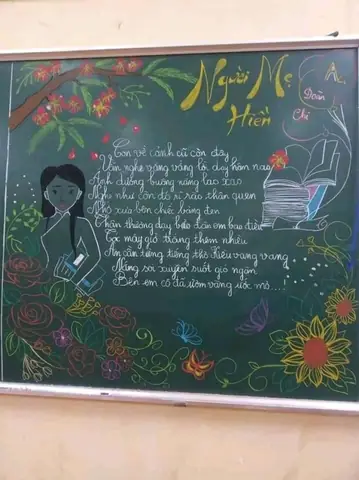 Người Mẹ
Hiền
Con về cảnh cũ còn đây
Vẫn nghe văng vẳng lời dạy hôm nao
Ánh dương buông nắng lao xao
Như như còn đó rì rào thân quen
Nhớ xưa bên chiếc bảng đen
Thân thương dạy bảo đàn em bao điều
Tóc mây gió thoảng thêm nhiều
Ân cần từng tiếng thơ Kiều vang vang
Mừng soi xuyên suốt gió ngàn
Bên em cô đã ươm vàng ước mơ...!
Đoàn
Chi